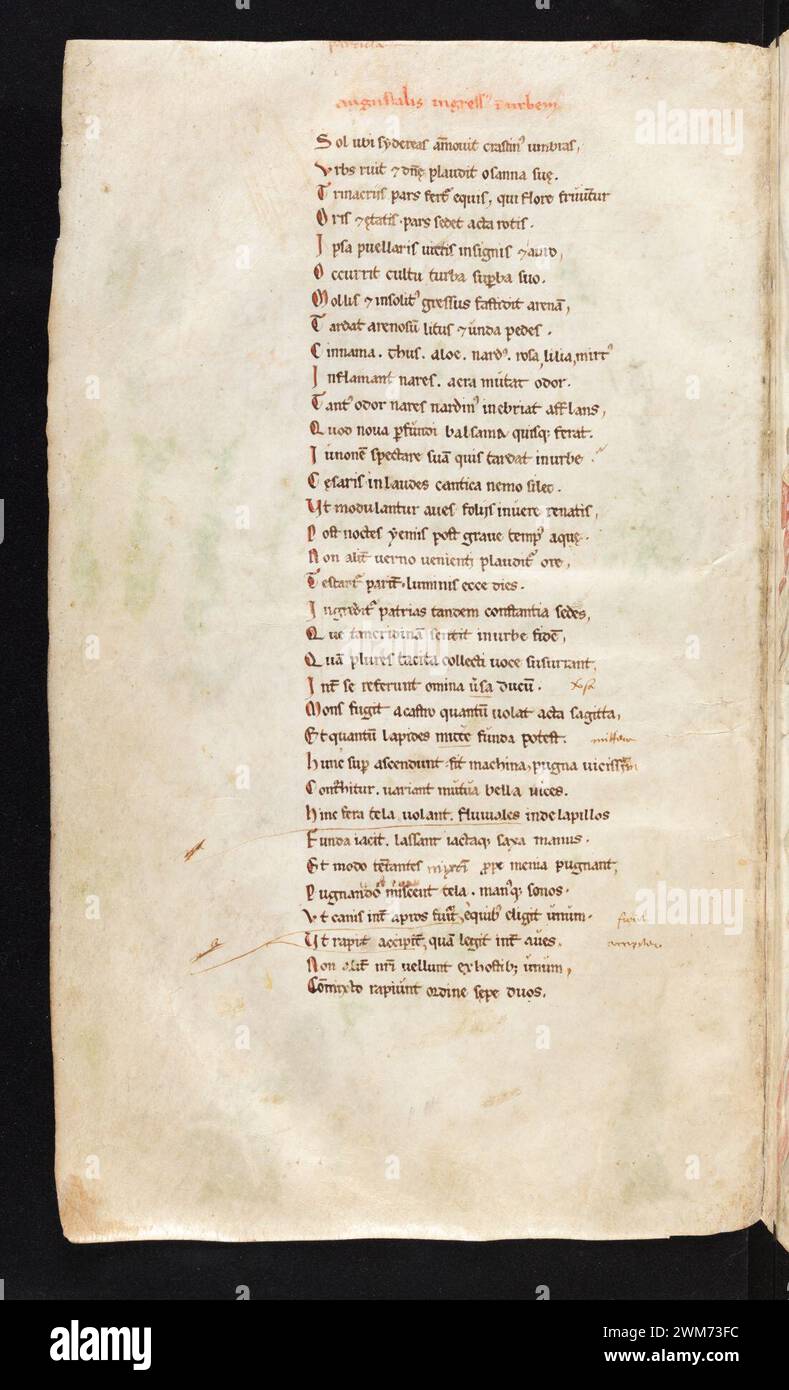 particula
augustalis ingress' ī urbem
Sol ubi sydereas am̄ouit crastin' umbras,
Vrbs ruit ⁊ dn̄ę plaudit osanna suę.
Trinacriis pars fert' equis, qui flore fruunt̄ur
Oris ⁊ ętatis. pars sedet acta rotis.
Ipsa puellaris uictis insignis ⁊ auro,
Occurrit cultu turba sup̄ba suo.
Mollis ⁊ insolit' gressus fastidit arenā,
Tardat arenosū litus ⁊ unda pedes.
Cinnama. thus. aloe. nard'. rosa, lilia, mirt'
Inflamant nares. aera mutat odor.
Tant' odor nares nardin' inebriat afflans,
Quod noua p̄fundi balsama quisq; ferat.
Iunonē spectare suā quis tardat in urbe
Cęsaris in laudes cantica nemo silet.
Vt modulantur aues foliis in uere renatis,
Post noctes yemis post graue temp' aquę.
Non alit̄ uerno uenienti plaudit' ore,
Testant' parit̄. luminis ecce dies.
Ingredit' patrias tandem constantia sedes,
Que tancridinā sentit in urbe fidē,
Quā plures tacita collecti uoce susurrant,
Int̄ se referunt omina ūsa ducū.
Mons fugit a castro quantū uolat acta sagitta,
Et quantū lapides mitte funda potest.
mittere
Hunc sup̄ ascendunt. fit machina, pugna uicissim
Contrahitur. uariant mutua bella uices.
Hinc fera tela uolant. fluuiales inde lapillos
Funda iacit. lassant iactaq; saxa manus.
Et modo tētantes p̄pe menia pugnant,
Pugnando miscent tela. manūq; sonos.
Vt canis int̄ apros furit, e quib' eligit unum.
furit
Vt rapit accipit̄, quā legit int̄ aues.
accipiter
Non alit̄ nr̄i uellunt ex hostib; unum,
Cōmixto rapiunt ordine sępe duos.
alamy
Image ID: 2WM73FC
www.alamy.com